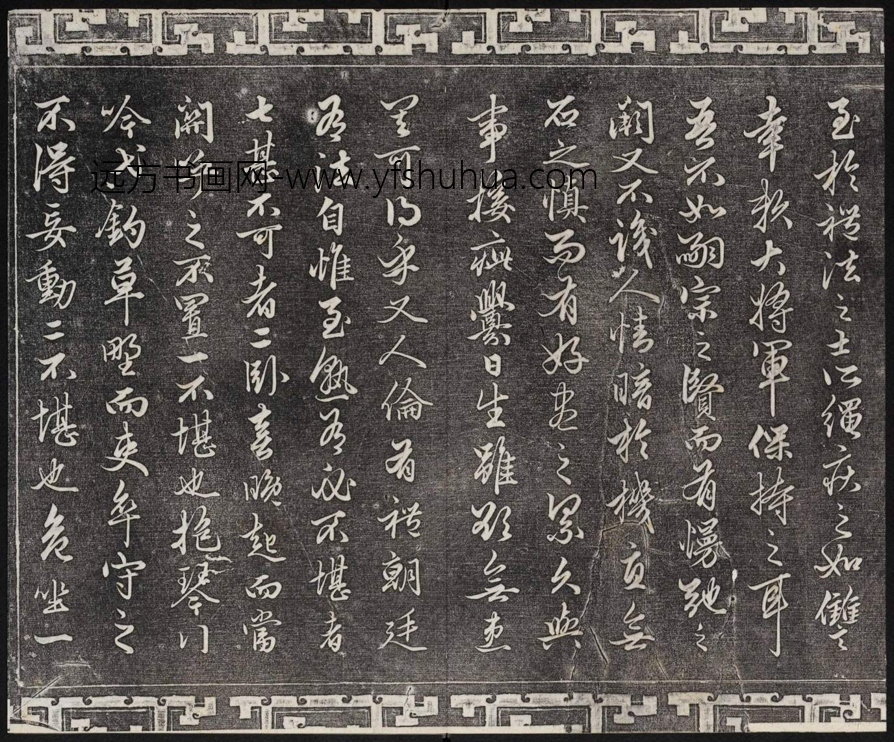 至於禮法之士所繩疾之如讎
幸賴大將軍保持之耳
吾不如嗣宗之賢而有慢弛之
闕又不識人情暗於機宜無
石之慎而有好盡之累久與
事接疵釁日生雖欲無患
其可得乎又人倫有禮朝廷
有法自惟至熟有必不堪者
七甚不可者二卧喜晚起而當
關呼之不置一不堪也抱琴行
吟弋釣草野而吏卒守之
不得妄動二不堪也危坐一
远方书画网-www.yfshuhua.com